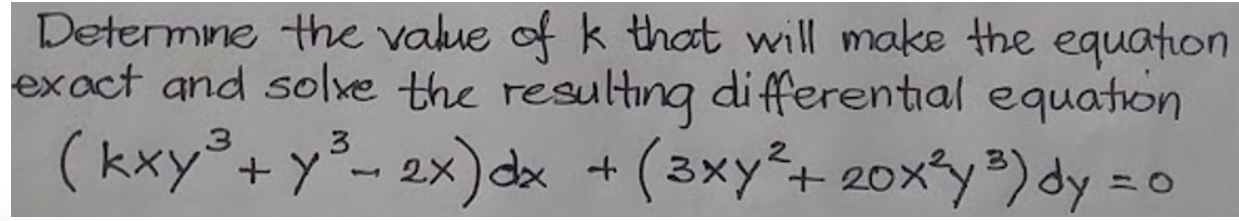 Determine the value of k that will make the equation
exact and solve the resulting differential equation
(kxy³ + y³ - 2x)dx + (3xy² + 20x²y³)dy = 0